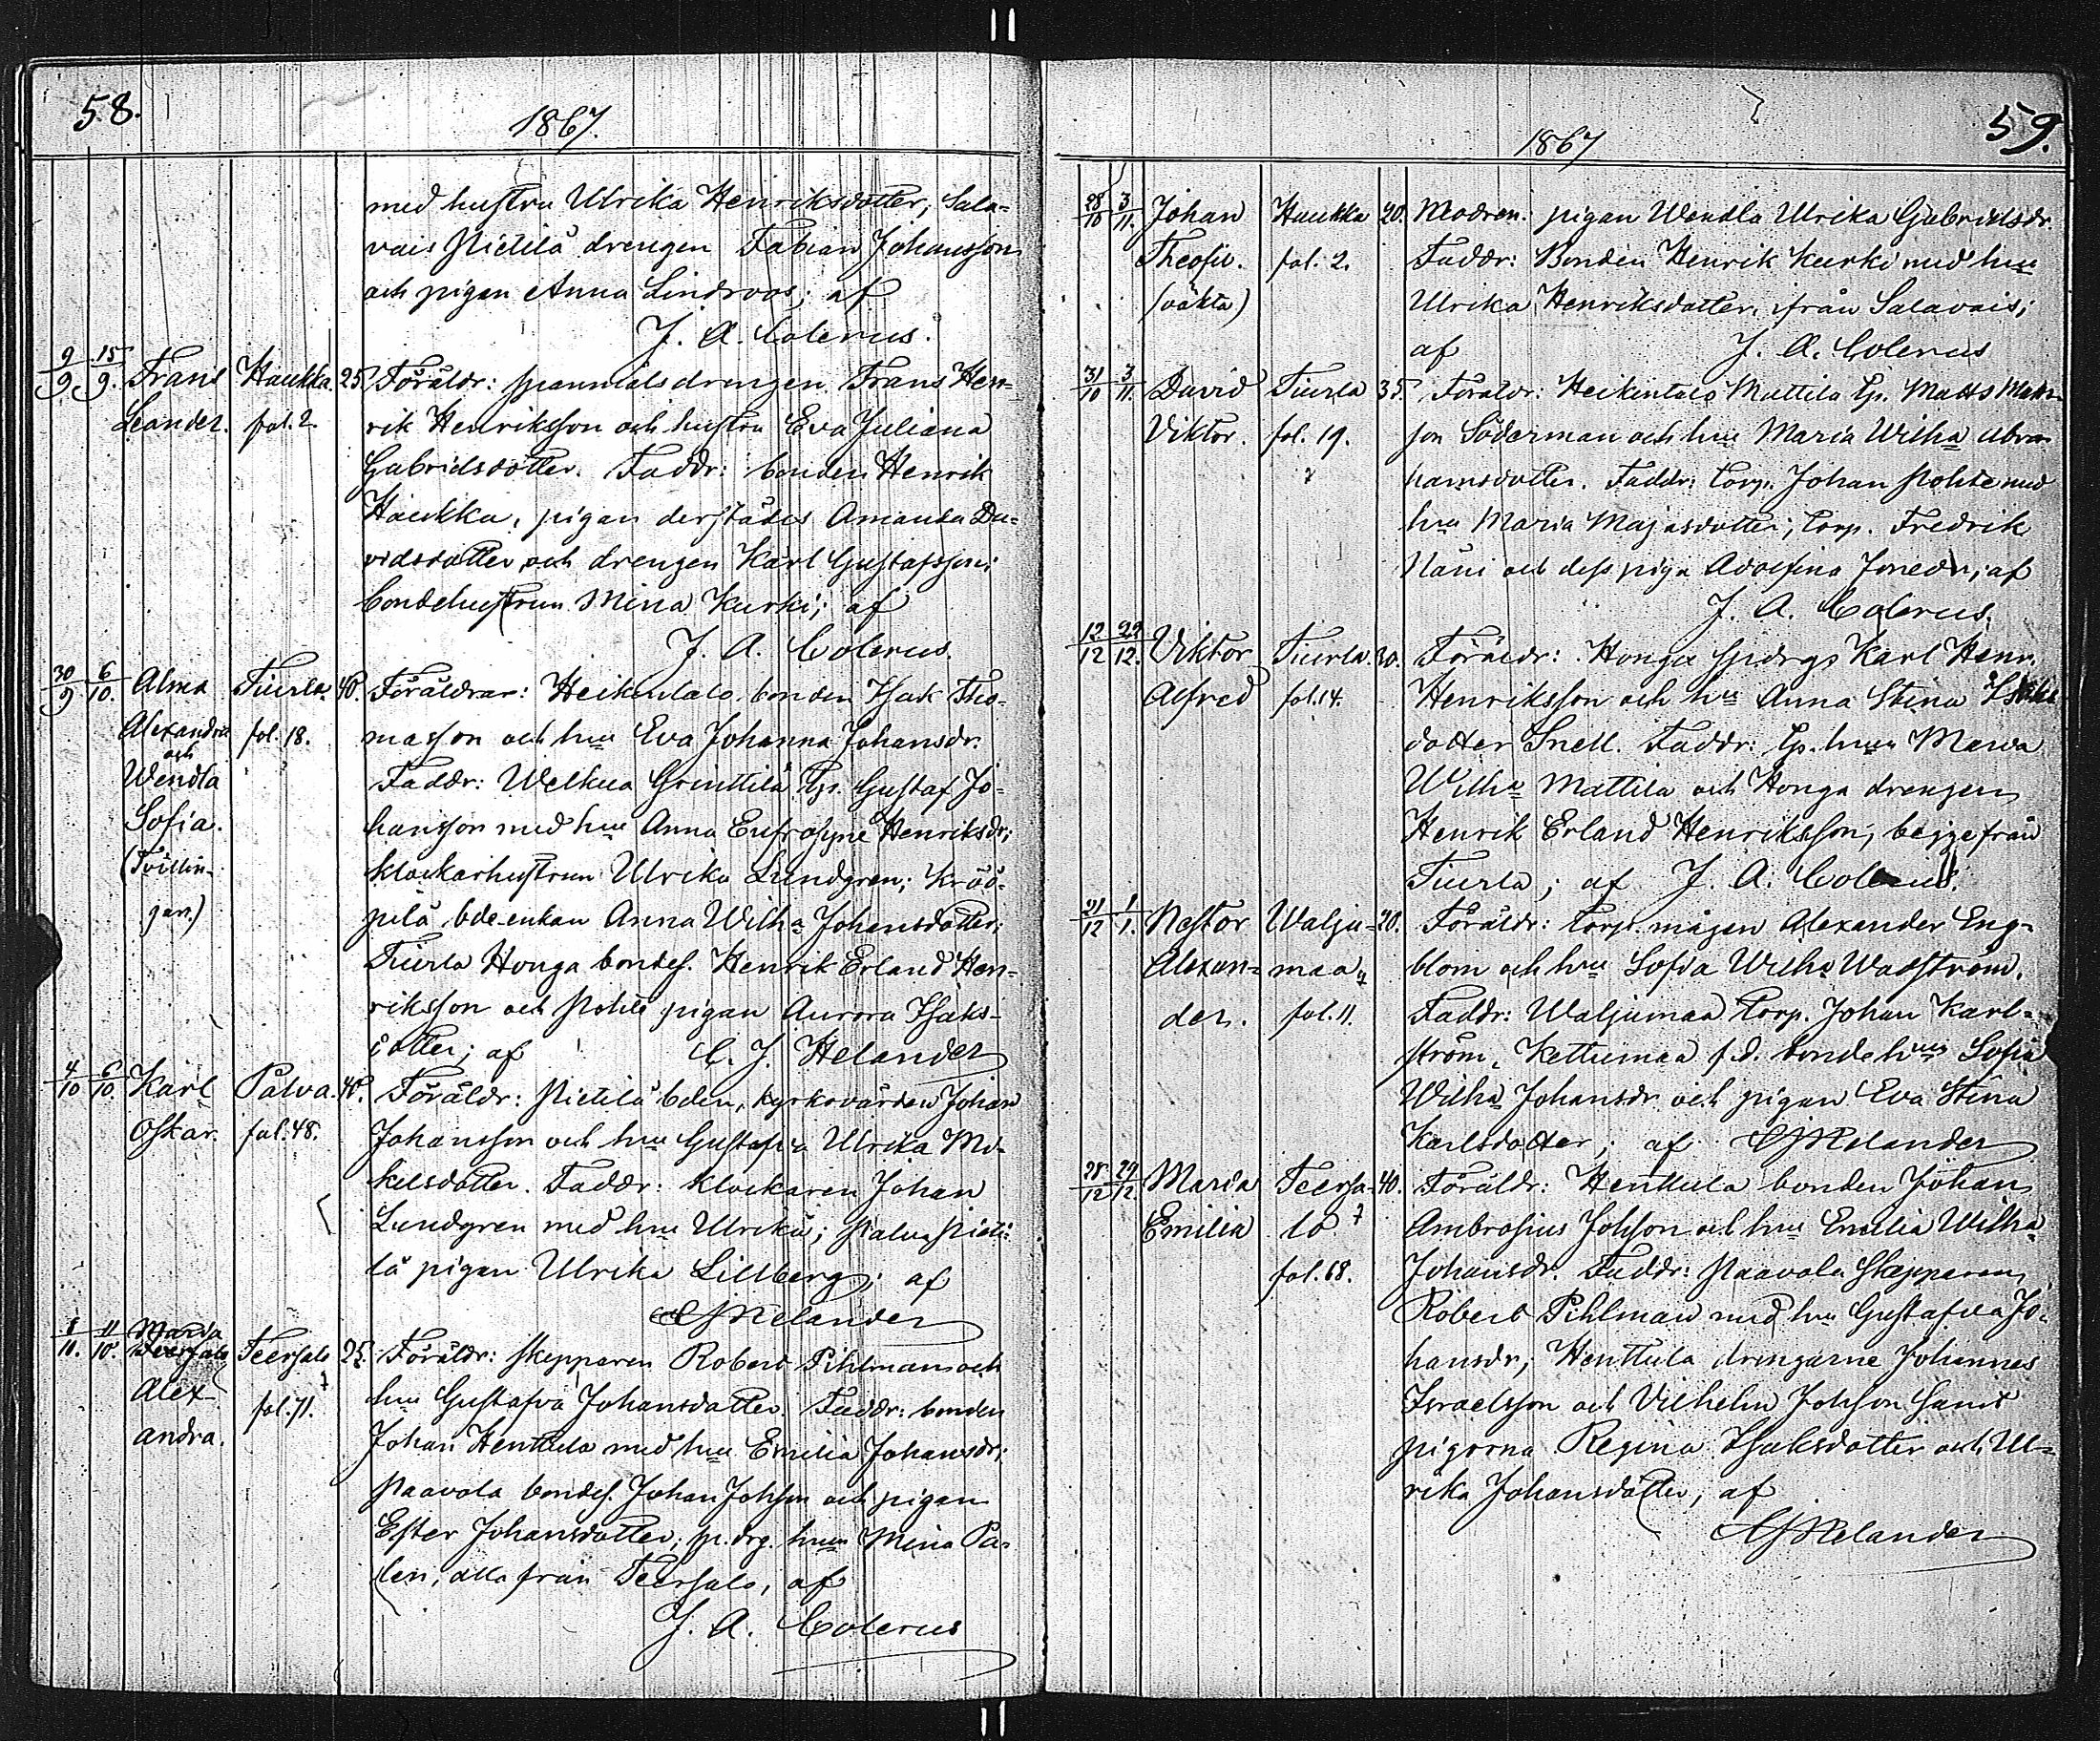 58.
1867.
med hustru Ulrika Henriksdotter, Sala=
vais Pietilä drengen Fabian Johansson
och pigan Anna Lindroos; af
J. A. Colerus.
9/9 15/9. Frans Haukka. 25. Föräldr: spannmålsdrengen Frans Hen=
Leander. fol. 2. rik Henriksson och hustru Eva Juliana
Gabrielsdotter. Faddr: bonden Henrik
Haukka, pigan derstädes Amanda Da=
vidsdotter och drengen Karl Gustafsson;
bondehustrun Mina Kurki; af
J. A. Colerus.
30/9 6/10. Alma Tiurla. 40. Föräldrar: Heikintalo bonden Isak Tho=
Alexandra fol. 18. masson och hru Eva Johanna Johansdr.
och
Wendla Faddr: Welkua Grinttilä Tp. Gustaf Jo=
Sofia. hansson med hru Anna Eufrosyne Henriksdr;
(Tvillin- klockarhustrun Ulrika Lundgren; Kröö=
gar.) pilä bde enkan Anna Wilha Johansdotter;
Tiurla Honga bondes. Henrik Erland Hen=
riksson och Pohls pigan Aurora Isaks-
dotter; af C. J. Helander
4/10 6/10. Karl Palva. 40. Föräldr: Pietilä bden, kyrkovärden Johan
Oskar. fol. 48. Johansson och hru Gustafva Ulrika Mi-
kelsdotter. Faddr: klockaren Johan
Lundgren med hru Ulrika; Palva Pieti=
lä pigan Ulrika Lillberg; af
CJHelander
8/10. 11/10. Maria
Teersalo 25. Föräldr: skepparen Robert Pihlman och
Alex- fol. 71. hru Gustafva Johansdotter. Faddr: bonden
andra. Johan Henttula med hru Emilia Johansdr;
Paavola bondes. Johan Johsson och pigan
Ester Johansdotter; sp. drg. hrun Mina Pa-
len, alla från Teersalo, af
J. A. Colerus
59.
1867
28/10 3/11. Johan Haukka 20. Modren: pigan Wendla Ulrika Gabrielsdr.
Theofil. fol. 2. Faddr: Bonden Henrik Kurki med hru
(oäkta) Ulrika Henriksdotter, ifrån Salavais;
af J. A. Colerus
31/10 3/11. David Tiurla 35. Föräldr: Heikintalo Mattila Tp. Matts Matts-
Viktor. fol. 19. son Söderman och hru Maria Wilha Abra-
hamsdotter. Faddr: Torp. Johan Pohls med
hru Maria Majasdotter; Torp. Fredrik
Näni och dess piga Adolfina Jonedr; af
J. A. Colerus.
12/12 22/12. Viktor Tiurla. 30. Föräldr: Honga spdrgs Karl Henr.
Alfred fol. 14. Henriksson och hru Anna Stina Isaks
dotter Snell. Faddr: Tp. hrun Maria
Wilha Mattila och Honga drengen
Henrik Erland Henriksson, begge från
Tiurla; af J. A. Colerus.
21/12 1/1. Nestor Walju- 20. Föräldr: Torp. mågen Alexander Eng-
Alexan= maa, blom och hru Sofia Wilha Wadström.
der. fol. 11. Faddr: Waljumaa Torp. Johan Karl-
ström, Kettumaa f.d. bonde hrun Sofia
Wilha Johansdr och pigan Eva Stina
Karlsdotter; af CJHelander
28/12 29/12. Maria Teersa- 40. Föräldr: Henttula bonden Johan
Emilia lo Ambrosius Johsson och hru Emilia Wilha
fol. 68. Johansdr. Faddr: Paavola Skepparen
Robert Pihlman med hru Gustafva Jo-
hansdr; Henttula drengarne Johannes
Israelsson och Vilhelm Johsson samt
pigorna Regina Isaksdotter och Ul=
rika Johansdotter; af
CJHelander